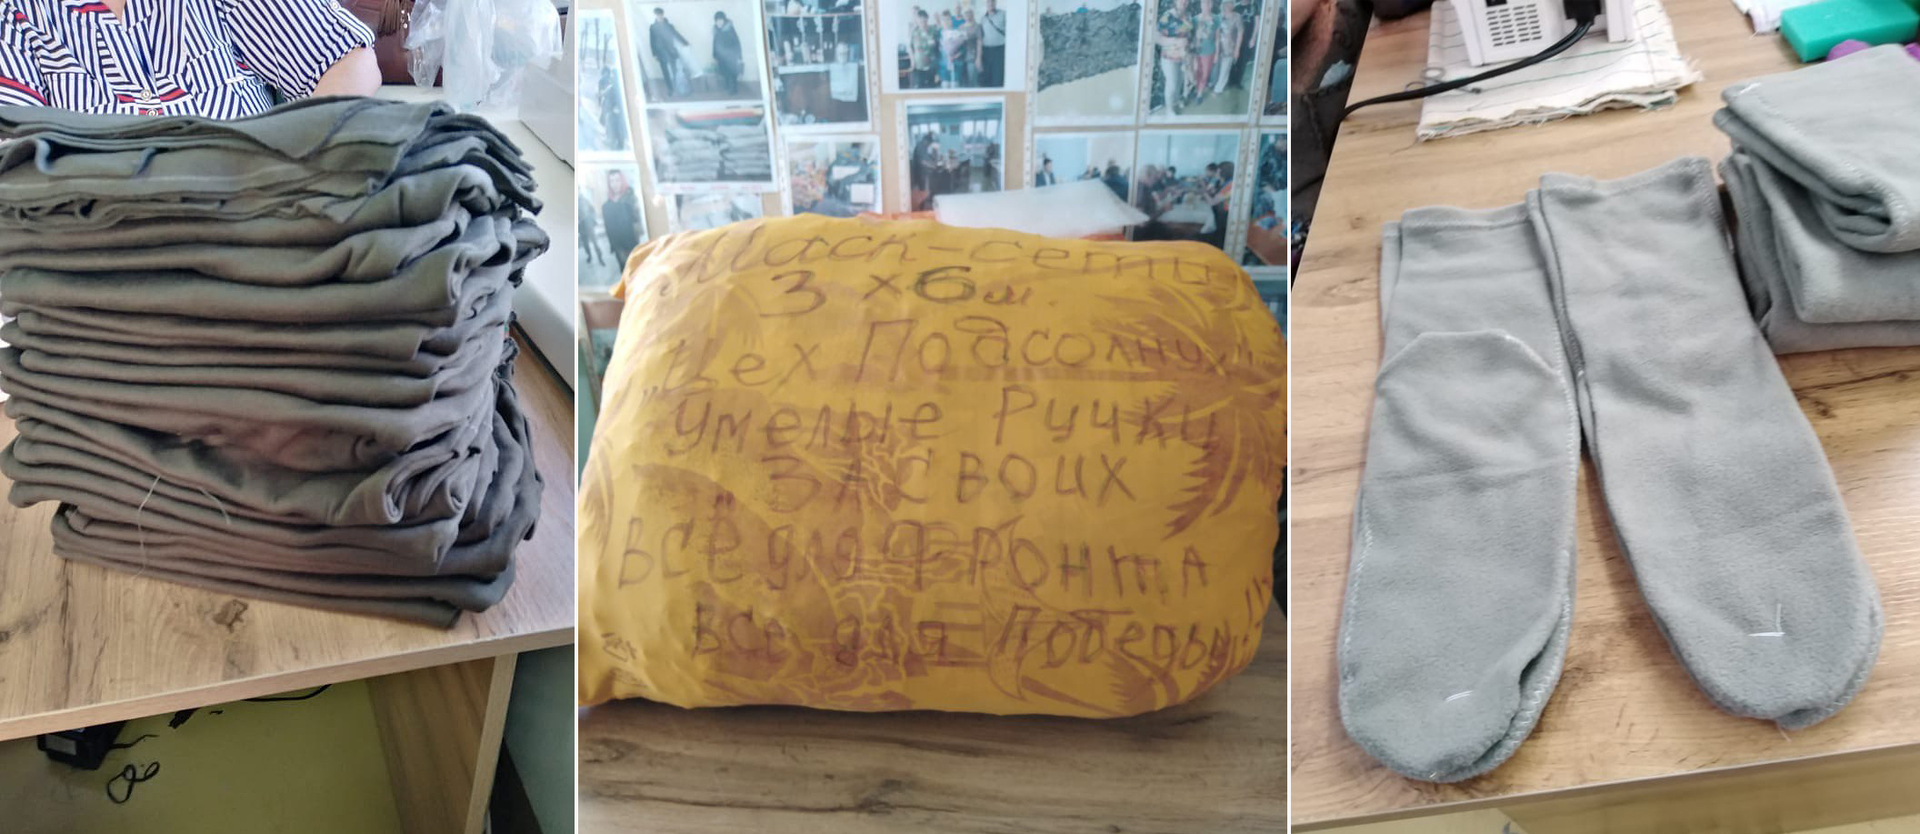 Маск-сеть
3 x 6 м.
Цех Подсолнух"
"Умелые Ручки
ZА СВОИХ
"ВСЁ для ФРОНТА
ВСЕ для Победы!"